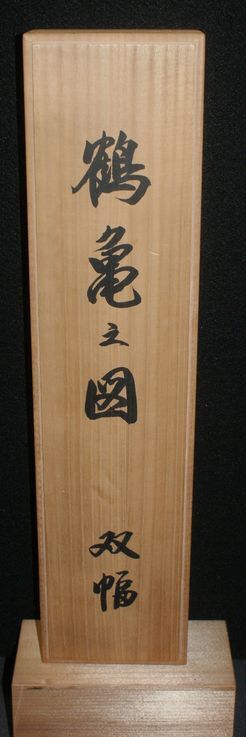 鶴亀之図 双幅